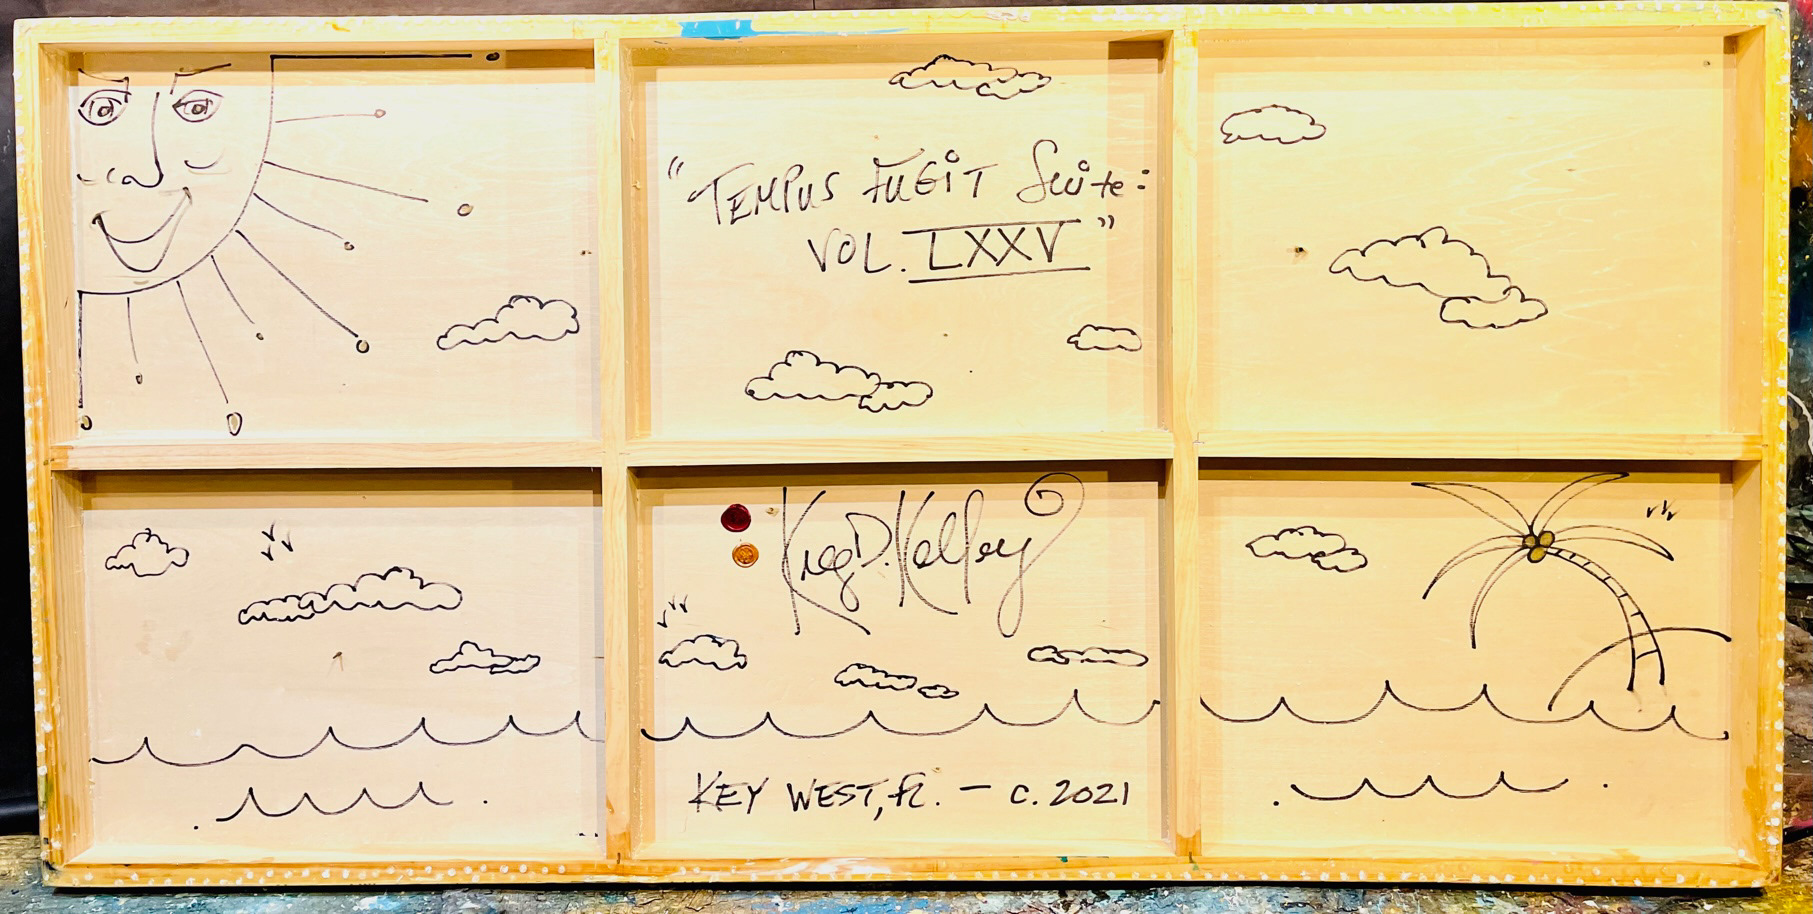 "TEMPUS FUGIT Suite:
VOL. LXXV"
D. Kelley
KEY WEST, FL. – c. 2021